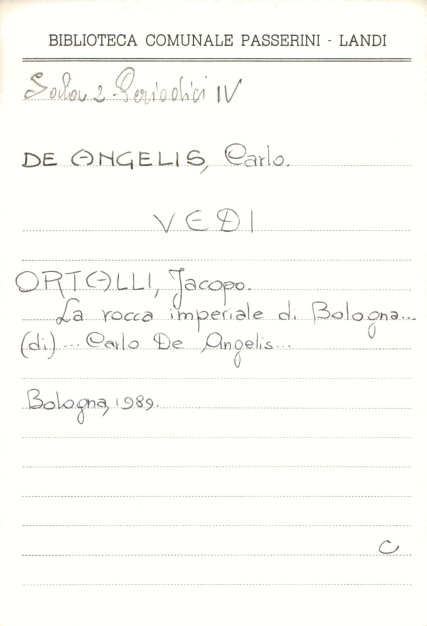 BIBLIOTECA COMUNALE PASSERINI - LANDI
Sala 2 - Periodici IV
DE ANGELIS, Carlo.
VEDI
ORTALLI, Jacopo.
La rocca imperiale di Bologna...
(di)... Carlo De Angelis...
Bologna, 1989.
C